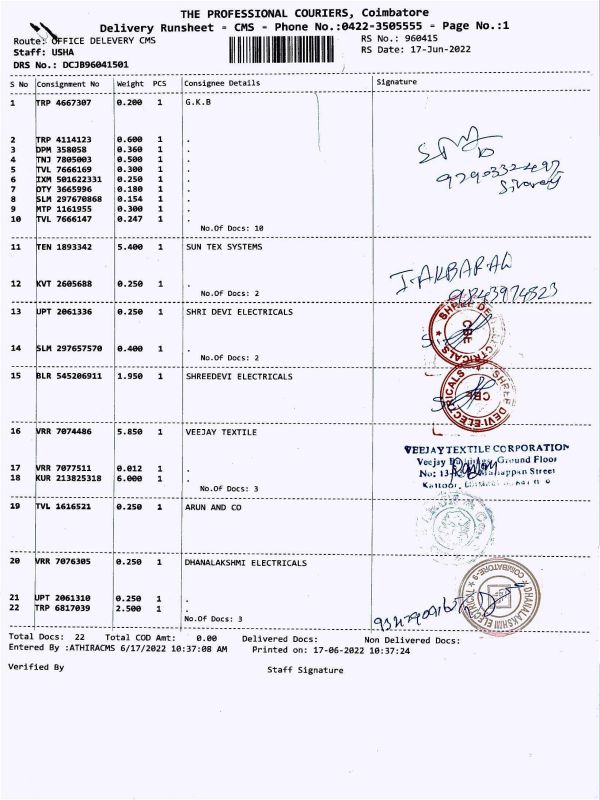 THE PROFESSIONAL COURIERS, Coimbatore
Delivery Runsheet - CMS - Phone No.:0422-3505555 - Page No.:1
Route: OFFICE DELEVERY CMS
RS No.: 960415
Staff: USHA
RS Date: 17-Jun-2022
DRS No.: DCJB96041501
S No Consignment No Weight PCS Consignee Details Signature
1 TRP 4667307 0.200 1 G.K.B
2 TRP 4114123 0.600 1 .
3 DPM 358058 0.360 1 .
4 TNJ 7805003 0.500 1 .
5 TVL 7666169 0.300 1 .
6 IXM 501622331 0.250 1 .
7 OTY 3665996 0.180 1 .
8 SLM 297670868 0.154 1 .
9 MTP 1161955 0.300 1 .
10 TVL 7666147 0.247 1 .
No.Of Docs: 10
11 TEN 1893342 5.400 1 SUN TEX SYSTEMS
I. AKBARAL
12 KVT 2605688 0.250 1 .
9843974823
No.Of Docs: 2
13 UPT 2061336 0.250 1 SHRI DEVI ELECTRICALS
SHREE DEVI ELECTRICALS
CBE
14 SLM 297657570 0.400 1 .
No.Of Docs: 2
15 BLR 545206911 1.950 1 SHREEDEVI ELECTRICALS
SHREE DEVI ELECTRICALS
CBE
16 VRR 7074486 5.850 1 VEEJAY TEXTILE
VEEJAY TEXTILE CORPORATION
Veejay Ground Floor
No: Street
Kattoor,
17 VRR 7077511 0.012 1 .
18 KUR 213825318 6.000 1 .
No.Of Docs: 3
19 TVL 1616521 0.250 1 ARUN AND CO
20 VRR 7076305 0.250 1 DHANALAKSHMI ELECTRICALS
DHANALAKSHMI ELECTRICALS
COIMBATORE-9
21 UPT 2061310 0.250 1 .
22 TRP 6817039 2.500 1 .
No.Of Docs: 3
Total Docs: 22 Total COD Amt: 0.00 Delivered Docs: Non Delivered Docs:
Entered By :ATHIRACMS 6/17/2022 10:37:08 AM Printed on: 17-06-2022 10:37:24
Verified By
Staff Signature